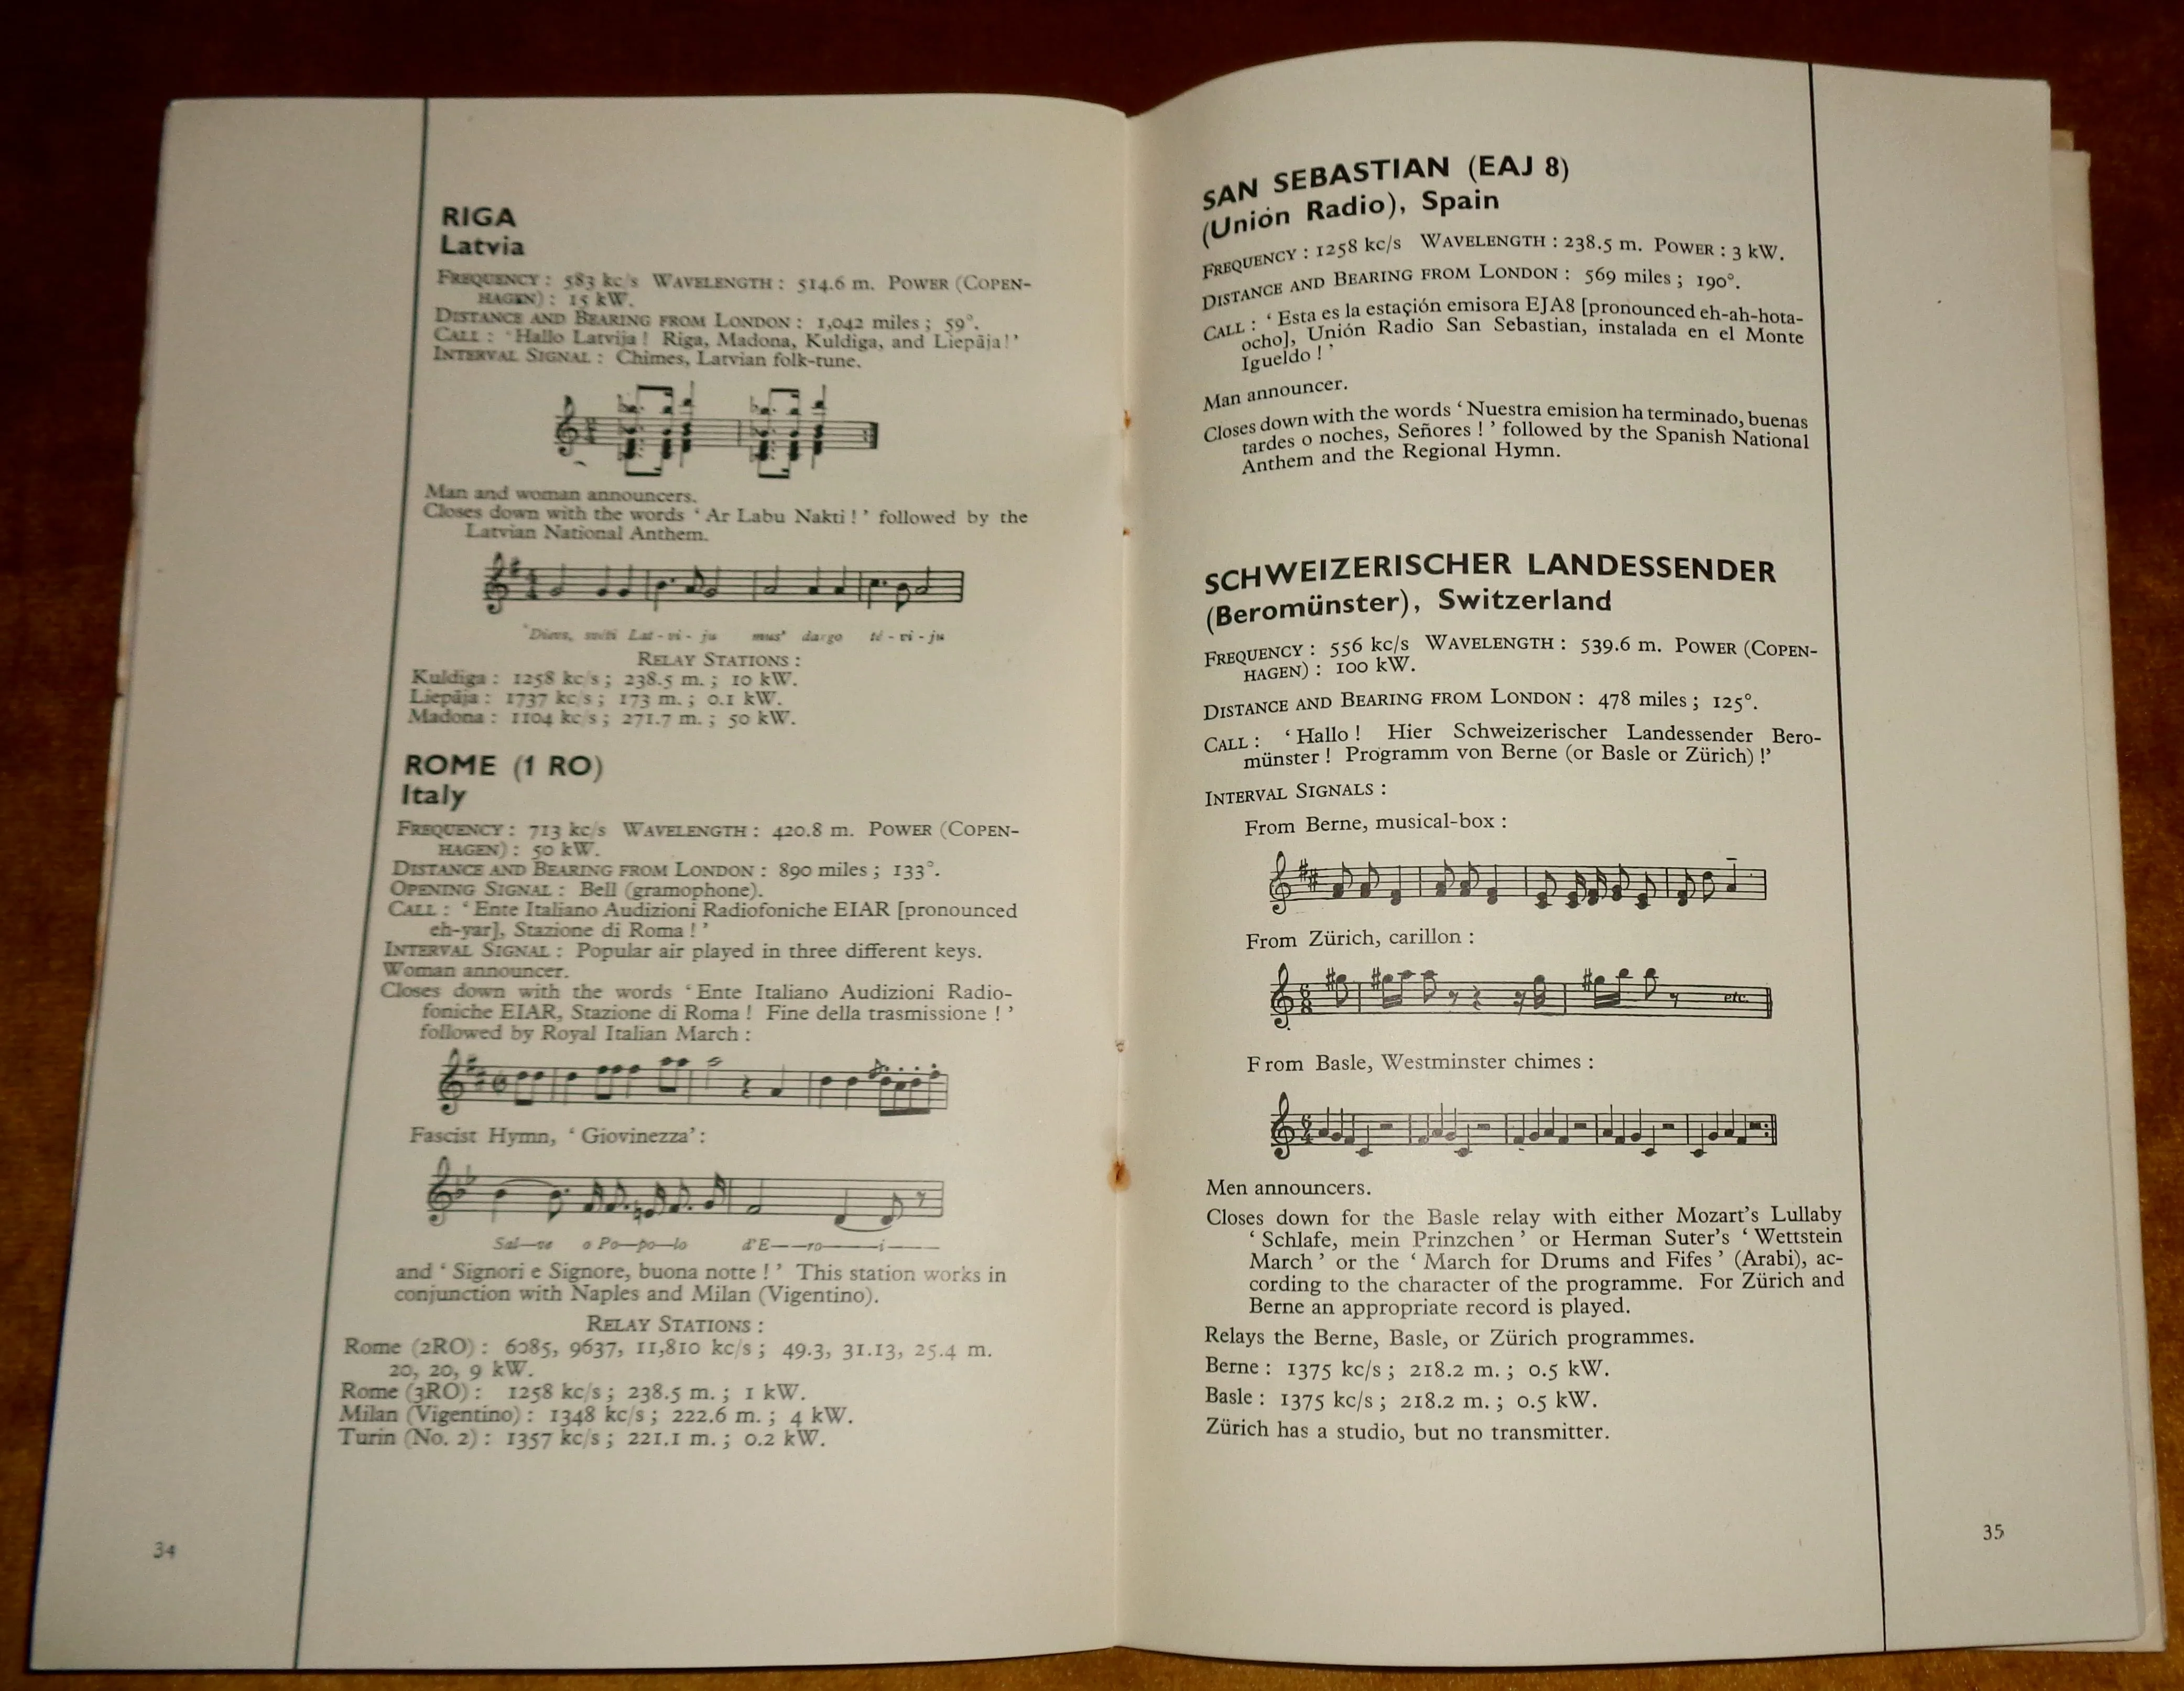 RIGA
Latvia
FREQUENCY : 583 kc/s WAVELENGTH : 514.6 m. POWER (COPEN-
HAGEN) : 15 kW.
DISTANCE AND BEARING FROM LONDON : 1,042 miles ; 59°.
CALL : ‘ Hallo Latvija ! Riga, Madona, Kuldiga, and Liepāja!’
INTERVAL SIGNAL : Chimes, Latvian folk-tune.
Man and woman announcers.
Closes down with the words ‘ Ar Labu Nakti ! ’ followed by the
Latvian National Anthem.
Dievs, svēti Lat - vi - ju mus' dargo tē - vi - ju
RELAY STATIONS :
Kuldiga : 1258 kc/s ; 238.5 m. ; 10 kW.
Liepāja : 1737 kc/s ; 173 m. ; 0.1 kW.
Madona : 1104 kc/s ; 271.7 m. ; 50 kW.
ROME (1 RO)
Italy
FREQUENCY : 713 kc/s WAVELENGTH : 420.8 m. POWER (COPEN-
HAGEN) : 50 kW.
DISTANCE AND BEARING FROM LONDON : 890 miles ; 133°.
OPENING SIGNAL : Bell (gramophone).
CALL : ‘ Ente Italiano Audizioni Radiofoniche EIAR [pronounced
eh-yar], Stazione di Roma ! ’
INTERVAL SIGNAL : Popular air played in three different keys.
Woman announcer.
Closes down with the words ‘ Ente Italiano Audizioni Radio-
foniche EIAR, Stazione di Roma ! Fine della trasmissione ! ’
followed by Royal Italian March :
Fascist Hymn, ‘ Giovinezza’ :
Sal—ve o Po—po—lo d'E——ro———i———
and ‘ Signori e Signore, buona notte ! ’ This station works in
conjunction with Naples and Milan (Vigentino).
RELAY STATIONS :
Rome (2RO) : 6085, 9637, 11,810 kc/s ; 49.3, 31.13, 25.4 m.
20, 20, 9 kW.
Rome (3RO) : 1258 kc/s ; 238.5 m. ; 1 kW.
Milan (Vigentino) : 1348 kc/s ; 222.6 m. ; 4 kW.
Turin (No. 2) : 1357 kc/s ; 221.1 m. ; 0.2 kW.
34
SAN SEBASTIAN (EAJ 8)
(Unión Radio), Spain
FREQUENCY : 1258 kc/s WAVELENGTH : 238.5 m. POWER : 3 kW.
DISTANCE AND BEARING FROM LONDON : 569 miles ; 190°.
CALL : ‘ Esta es la estaçión emisora EJA8 [pronounced eh-ah-hota-
ocho], Unión Radio San Sebastian, instalada en el Monte
Igueldo ! ’
Man announcer.
Closes down with the words ‘ Nuestra emision ha terminado, buenas
tardes o noches, Señores ! ’ followed by the Spanish National
Anthem and the Regional Hymn.
SCHWEIZERISCHER LANDESSENDER
(Beromünster), Switzerland
FREQUENCY : 556 kc/s WAVELENGTH : 539.6 m. POWER (COPEN-
HAGEN) : 100 kW.
DISTANCE AND BEARING FROM LONDON : 478 miles ; 125°.
CALL : ‘ Hallo ! Hier Schweizerischer Landessender Bero-
münster ! Programm von Berne (or Basle or Zürich) !’
INTERVAL SIGNALS :
From Berne, musical-box :
From Zürich, carillon :
etc.
From Basle, Westminster chimes :
Men announcers.
Closes down for the Basle relay with either Mozart’s Lullaby
‘ Schlafe, mein Prinzchen ’ or Herman Suter’s ‘ Wettstein
March ’ or the ‘ March for Drums and Fifes ’ (Arabi), ac-
cording to the character of the programme. For Zürich and
Berne an appropriate record is played.
Relays the Berne, Basle, or Zürich programmes.
Berne : 1375 kc/s ; 218.2 m. ; 0.5 kW.
Basle : 1375 kc/s ; 218.2 m. ; 0.5 kW.
Zürich has a studio, but no transmitter.
35